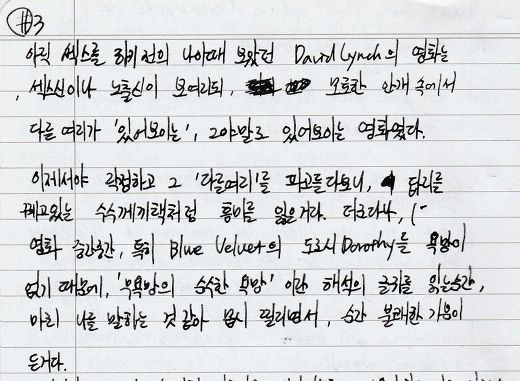 #3
아직 섹스를 하기 전의 나이때 보았던 David Lynch의 영화는
, 섹스신이나 노출신이 보여리되, 모호한 안개 속에서
다를 여리가 '있어보이는', 그야말로 있어보이는 영화였다.
이제서야 작정하고 그 '다를여리'를 파고들다보니, 답리를
께고있는 수수께끼책처럼 흥미를 잃은거다. 더크다나, (-
영화 중간중간, 특히 Blue Velvet의 도로시Dorothy들 욕망이
없기 때문에, '무욕망의 순수한 욕망' 이란 해석의 글귀를 읽는순간,
마치 나를 말하는 것 같아 몹시 떨리면서, 순간 불쾌한 기운이
든거다.